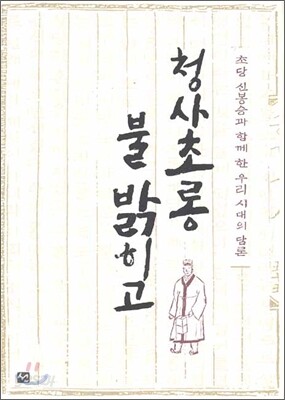 초당 신봉승과 함께 한 우리 시대의 담론
청사초롱
불 밝히고
선